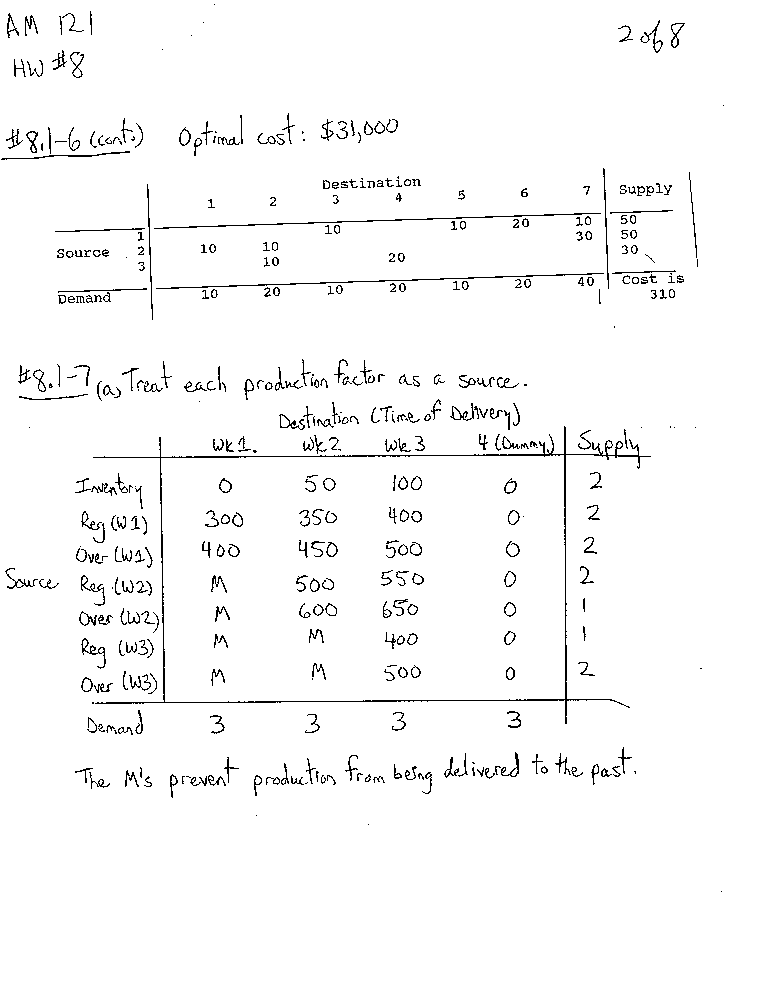 AM 121
2 of 8
HW #8
#8.1-6 (cont.) Optimal cost: $31,000
Destination
1 2 3 4 5 6 7 Supply
1 10 10 20 10 50
Source 2 10 10 30 50
3 10 20 30
Demand 10 20 10 20 10 20 40 Cost is
310
#8.1-7 (a) Treat each production factor as a source.
Destination (Time of Delivery)
Wk 1. Wk 2 Wk 3 4 (Dummy) Supply
Inventory 0 50 100 0 2
Reg (W1) 300 350 400 0 2
Over (W1) 400 450 500 0 2
Source Reg (W2) M 500 550 0 2
Over (W2) M 600 650 0 1
Reg (W3) M M 400 0 1
Over (W3) M M 500 0 2
Demand 3 3 3 3
The M's prevent production from being delivered to the past.